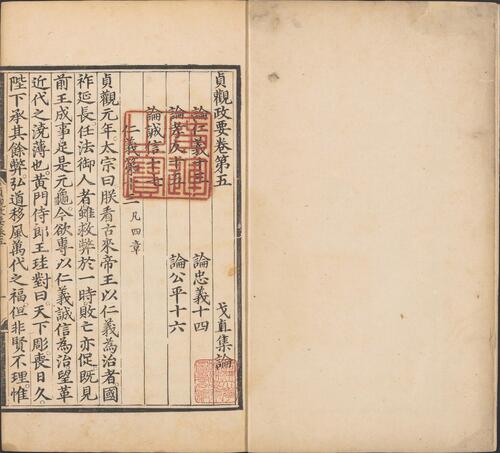 貞觀政要卷第五
戈直集論
論仁義十三
論忠義十四
論孝友十五
論公平十六
論誠信十七
仁義第十三 凡四章
貞觀元年太宗曰朕看古來帝王以仁義為治者國
祚延長任法御人者雖救弊於一時敗亡亦促既見
前王成事足是元龜今欲專以仁義誠信為治望革
近代之澆薄也黃門侍郎王珪對曰天下彫喪日久
陛下承其餘弊弘道移風萬代之福但非賢不理惟